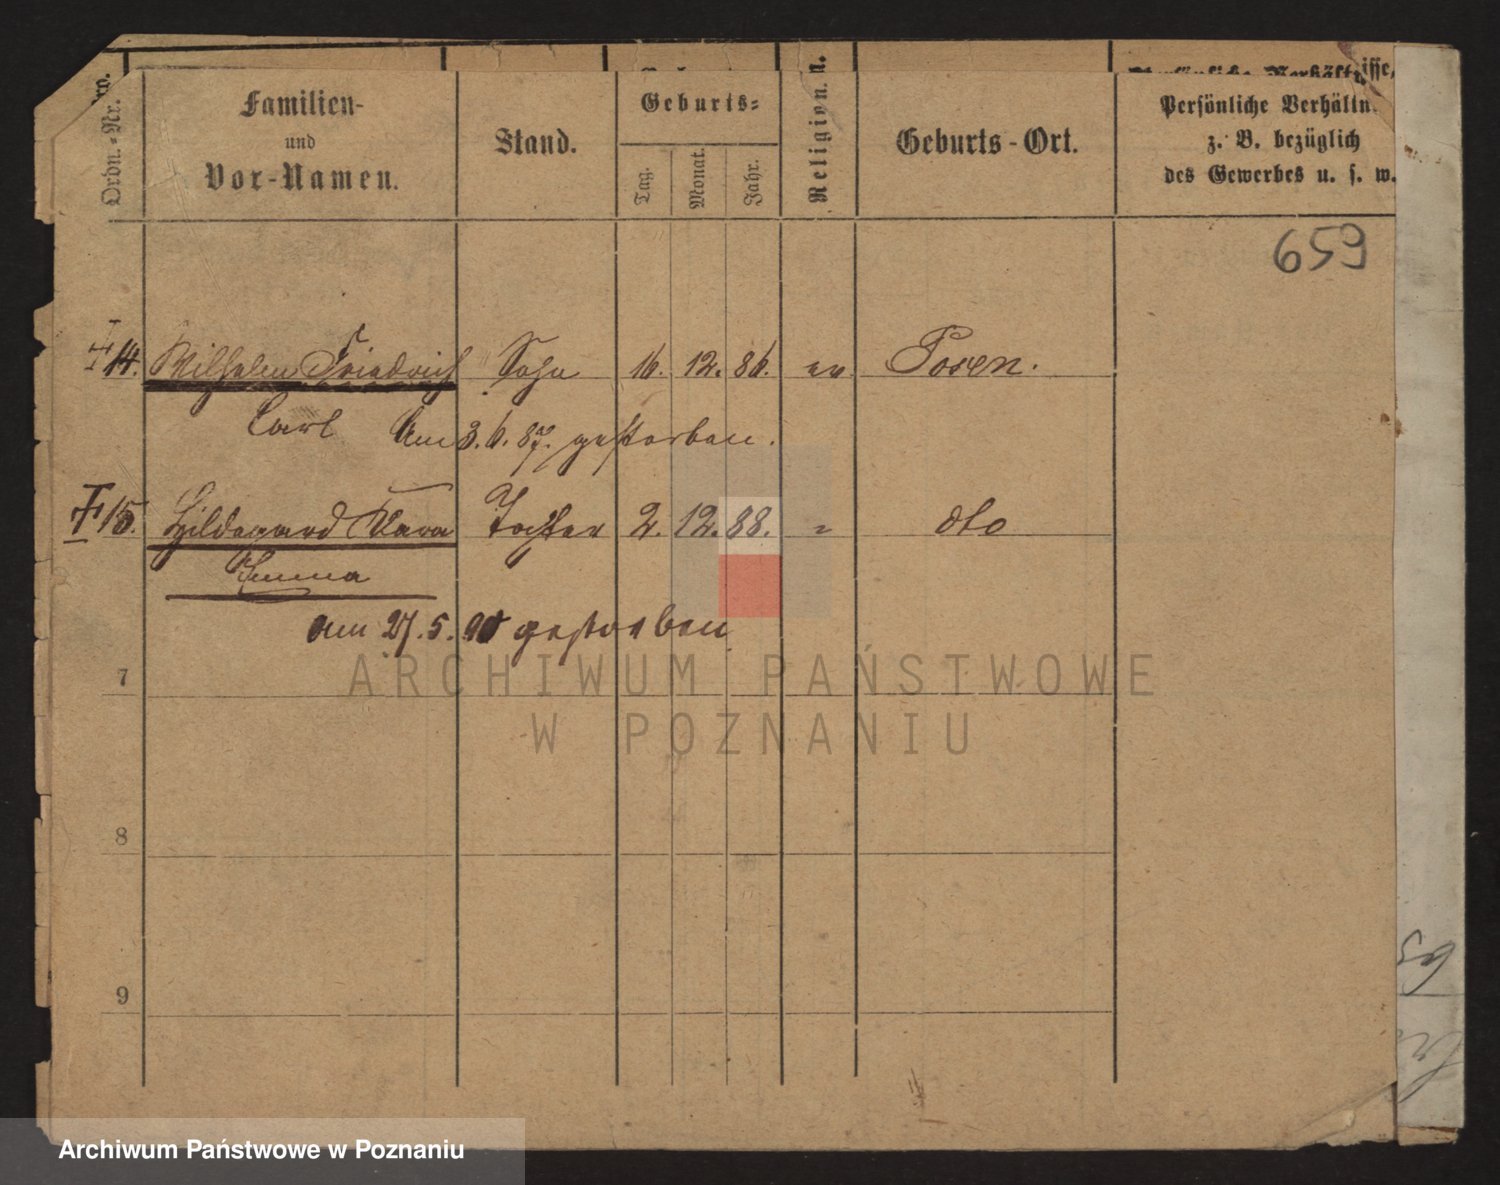 Ordn.-Nr.
Familien-
und
Vor-Namen.
Stand.
Geburts-
Tag.
Monat.
Jahr.
Religion.
Geburts-Ort.
Persönliche Verhältn
z. B. bezüglich
des Gewerbes u. s. w.
659
14. Wilhelm Friedrich Sohn 16. 12. 86. ev. Posen.
Carl Am 3. 6. 87. gestorben.
15. Hildegard Clara Tochter 2. 12. 88. " dto
Emma
am 27. 5. 90 gestorben
7
8
9
ARCHIWUM PAŃSTWOWE
W POZNANIU
Archiwum Państwowe w Poznaniu